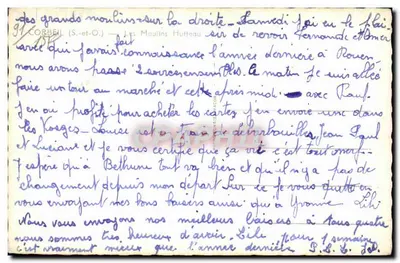 des grands moulins sur la droite. Samedi j'ai eu le plai
CORBEIL (S.-et-O.) Les Moulins
sir de revoir Fernande et
avec qui j'avais fait connaissance l'année dernière à Rouen
nous avons passé 2 ensembles. Ce matin je suis allé
faire un tour au marché et cet après midi avec Paul
J'en ai profité pour acheter les cartes j'en envoie une dans
les Vosges. est en train de débarbouiller Jean Paul
et Luciane et je vous certifie que ça c'est tout
J'espère qu'à Bethune tout va bien et qu'il n'y a pas de
changement depuis mon départ. Sur ce je vous quitte en
vous envoyant mes bons baisers ainsi qu'à Yvonne Lili
Nous vous envoyons nos meilleurs baisers à tous quatre
nous sommes très heureux d'avoir Lili pour 1 semaine
c'est vraiment mieux que l'année dernière